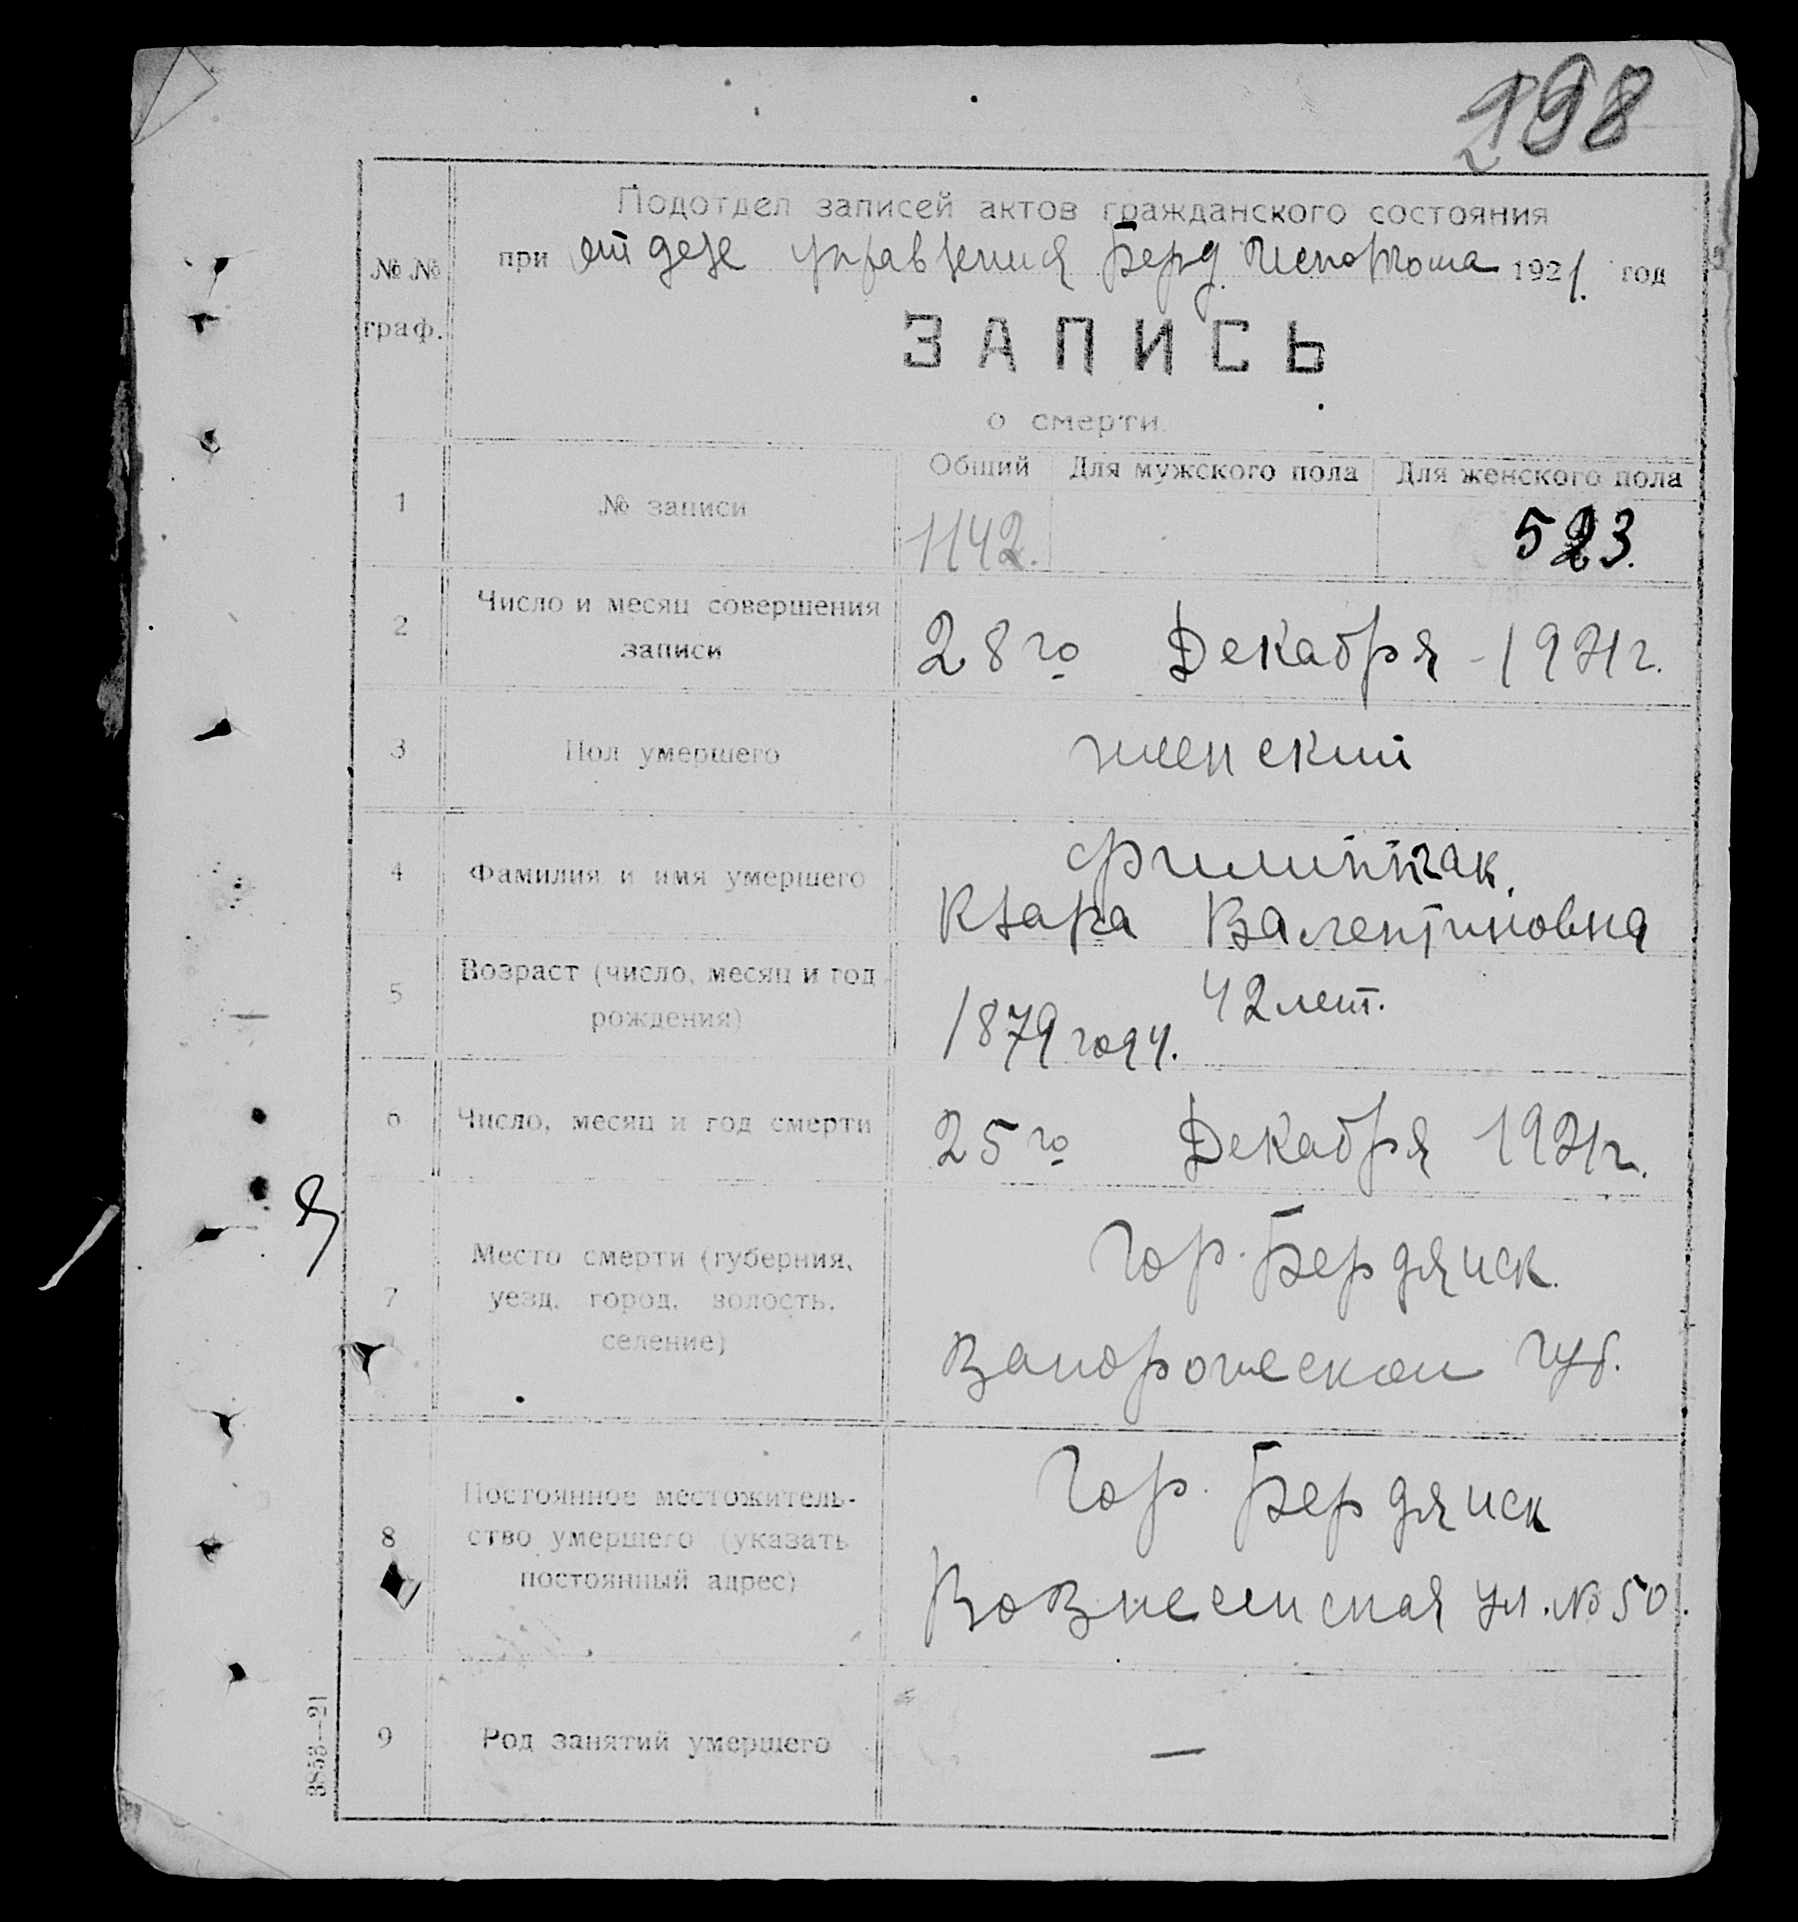 198
Подотдел записей актов гражданского состояния
№№ граф.
при отделе управления Берд. Исполкома 1921 год
ЗАПИСЬ
о смерти.
1
№ записи
Общий
Для мужского пола
Для женского пола
1142.
523.
2
Число и месяц совершения
записи
28го Декабря - 1921 г.
3
Пол умершего
женский
4
Фамилия и имя умершего
Филиппчак.
Клара Валентиновна
5
Возраст (число, месяц и год
рождения)
42 лет.
1879 году.
6
Число, месяц и год смерти
25го Декабря 1921 г.
7
Место смерти (губерния,
уезд, город, волость,
селение)
Гор. Бердянск.
Запорожеской губ.
8
Постоянное местожитель-
ство умершего (указать
постоянный адрес)
Гор. Бердянск
Вознесенская ул. № 50.
9
Род занятий умершего
—
3853—21